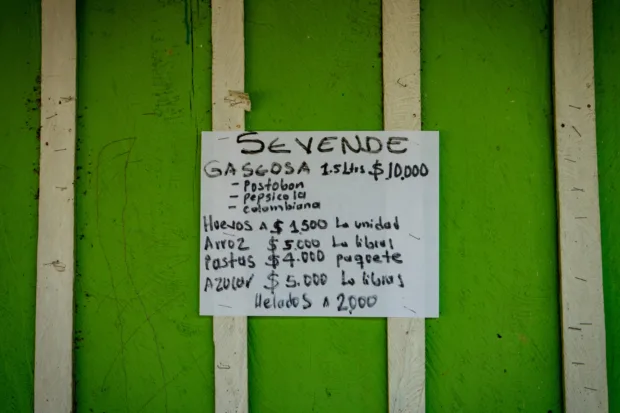 SE VENDE
GASEOSA 1.5 Ltrs $10,000
- Postobon
- pepsi cola
- colombiana
Huevos A $ 1,500 La unidad
Arroz $ 5,000 La libra
Pastas $ 4.000 paquete
AZUCAR $ 5.000 La libra
Helados A 2,000